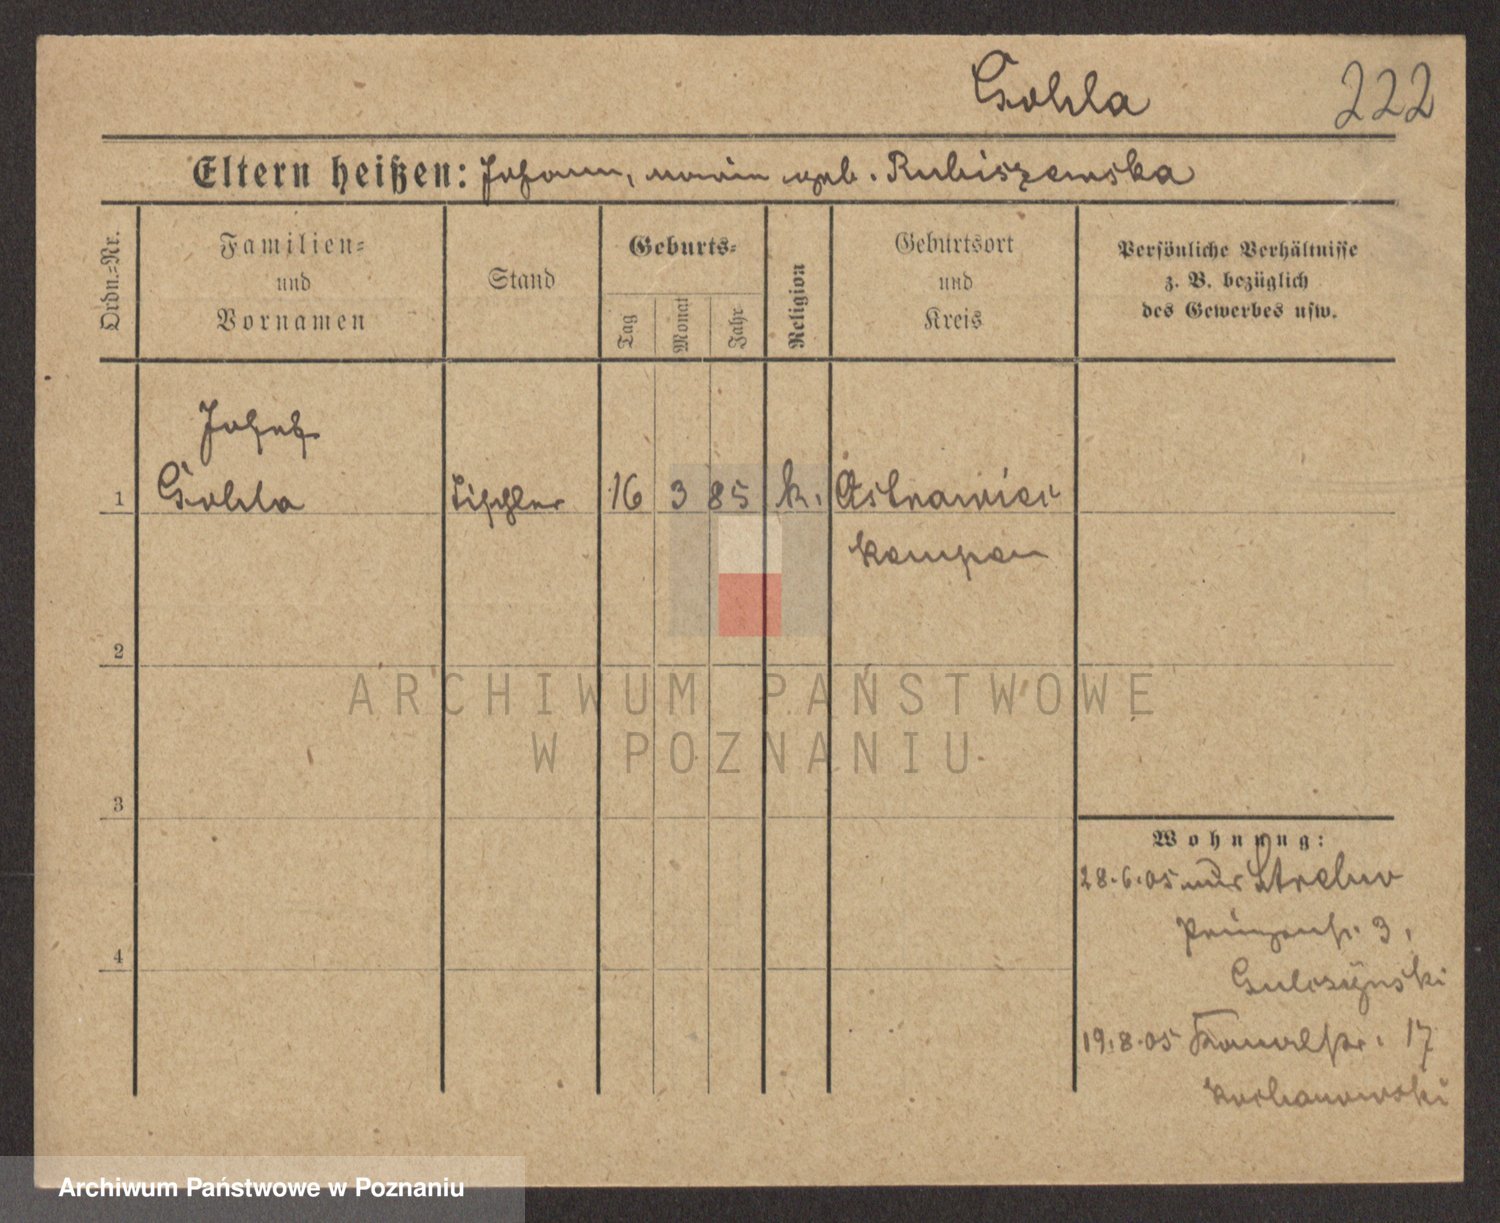 Gohla 222
Eltern heißen: Johann, Marie geb. Rubiszewska
Ordn.=Nr.
Familien=
und
Vornamen
Stand
Geburts=
Tag
Monat
Jahr
Religion
Geburtsort
und
Kreis
Persönliche Verhältnisse
z. B. bezüglich
des Gewerbes usw.
Josef
1 Gohla Tischler 16 3 85 k.
Kempen
2
ARCHIWUM PAŃSTWOWE
W POZNANIU
3
Wohnung:
28.6.05 aus Strelno
3,
Gulczynski
4
19.8.05 Kanalstr. 17
Kochanowski
Archiwum Państwowe w Poznaniu